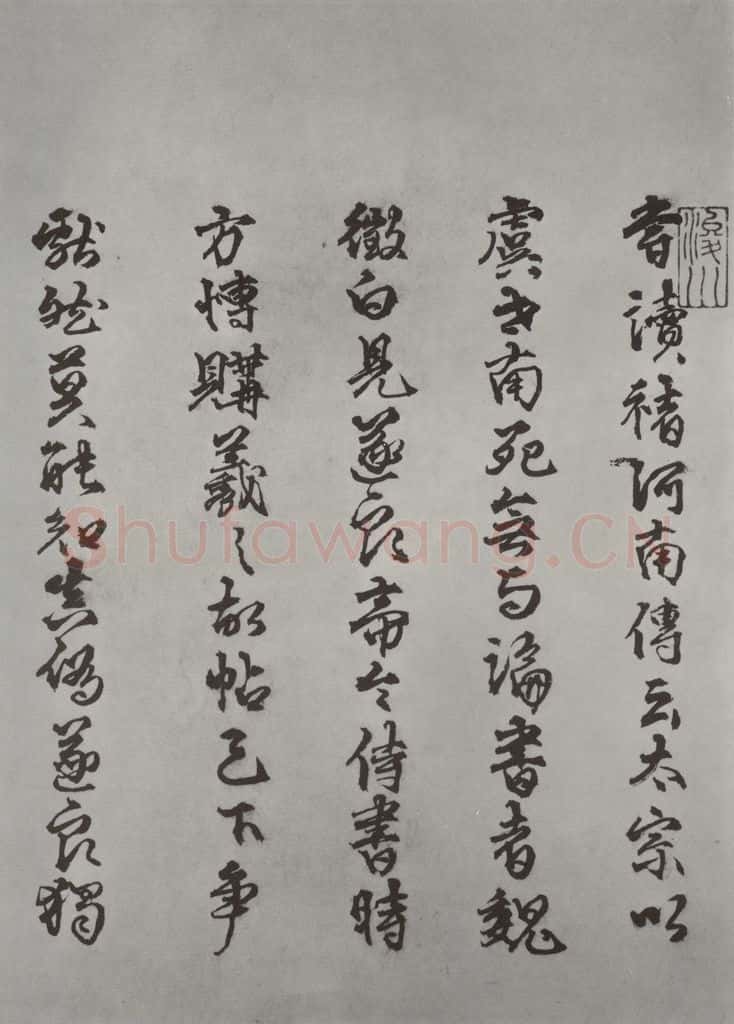 嘗讀褚河南傳云太宗以
虞世南死無与論書者魏
徵白見遂良帝令侍書時
方博購羲之故帖天下争
獻然莫能知真偽遂良獨
Shufawang.CN